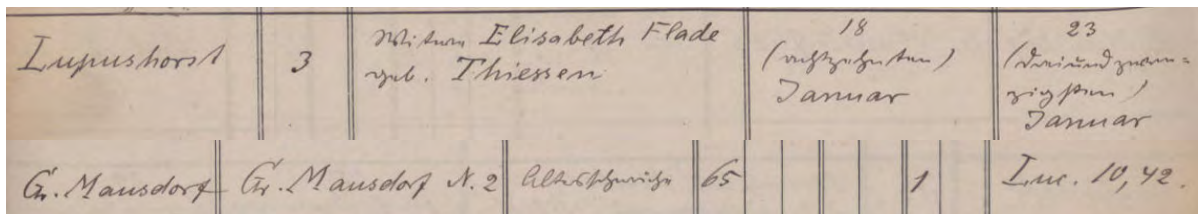 Lupushorst
3
Witwe Elisabeth Flade
geb. Thiessen
18
(achtzehnten)
Januar
23
(dreiundzwan=
zigsten)
Januar
Gr. Mausdorf
Gr. Mausdorf N. 2
Altersschwäche
65
1
Luc. 10,42.